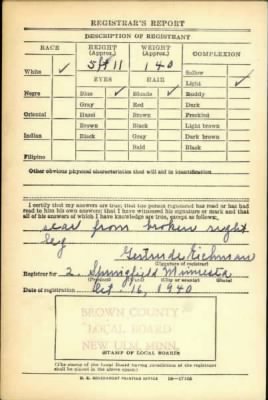 REGISTRAR'S REPORT
DESCRIPTION OF REGISTRANT
RACE HEIGHT (Approx.) WEIGHT (Approx.) COMPLEXION
5 ft 11 140
White ✓ EYES HAIR Sallow
Light ✓
Negro Blue ✓ Blonde ✓ Ruddy
Gray Red Dark
Oriental Hazel Brown Freckled
Brown Black Light brown
Indian Black Gray Dark brown
Bald Black
Filipino
Other obvious physical characteristics that will aid in identification
I certify that my answers are true; that the person registered has read or has had
read to him his own answers; that I have witnessed his signature or mark and that
all of his answers of which I have knowledge are true, except as follows:
scar from broken right
leg
Gertrude
(Signature of registrar)
Registrar for 2. Springfield Minnesota
(City or county) (State)
Date of registration Oct. 16, 1940
BROWN COUNTY
LOCAL BOARD
NEW ULM, MINN.
STAMP OF LOCAL BOARD
(The stamp of the Local Board having jurisdiction of the registrant
shall be placed in the above space.)
U. S. GOVERNMENT PRINTING OFFICE 16—17105